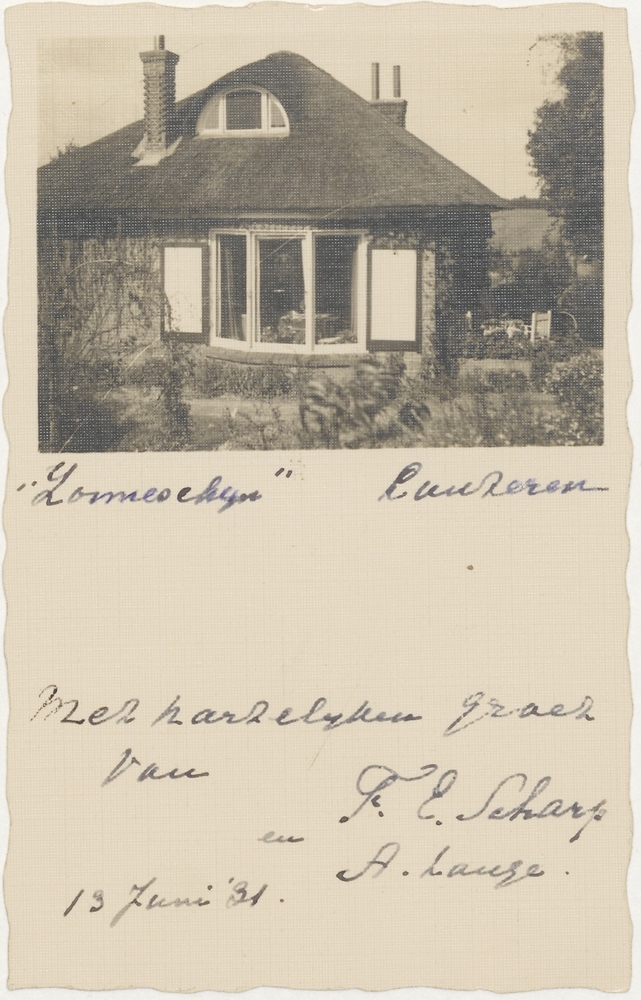 "Zonneschyn" Lunteren
Met hartelyken groet
van
F. E. Scharp
en
A. Lange.
13 Juni '31.